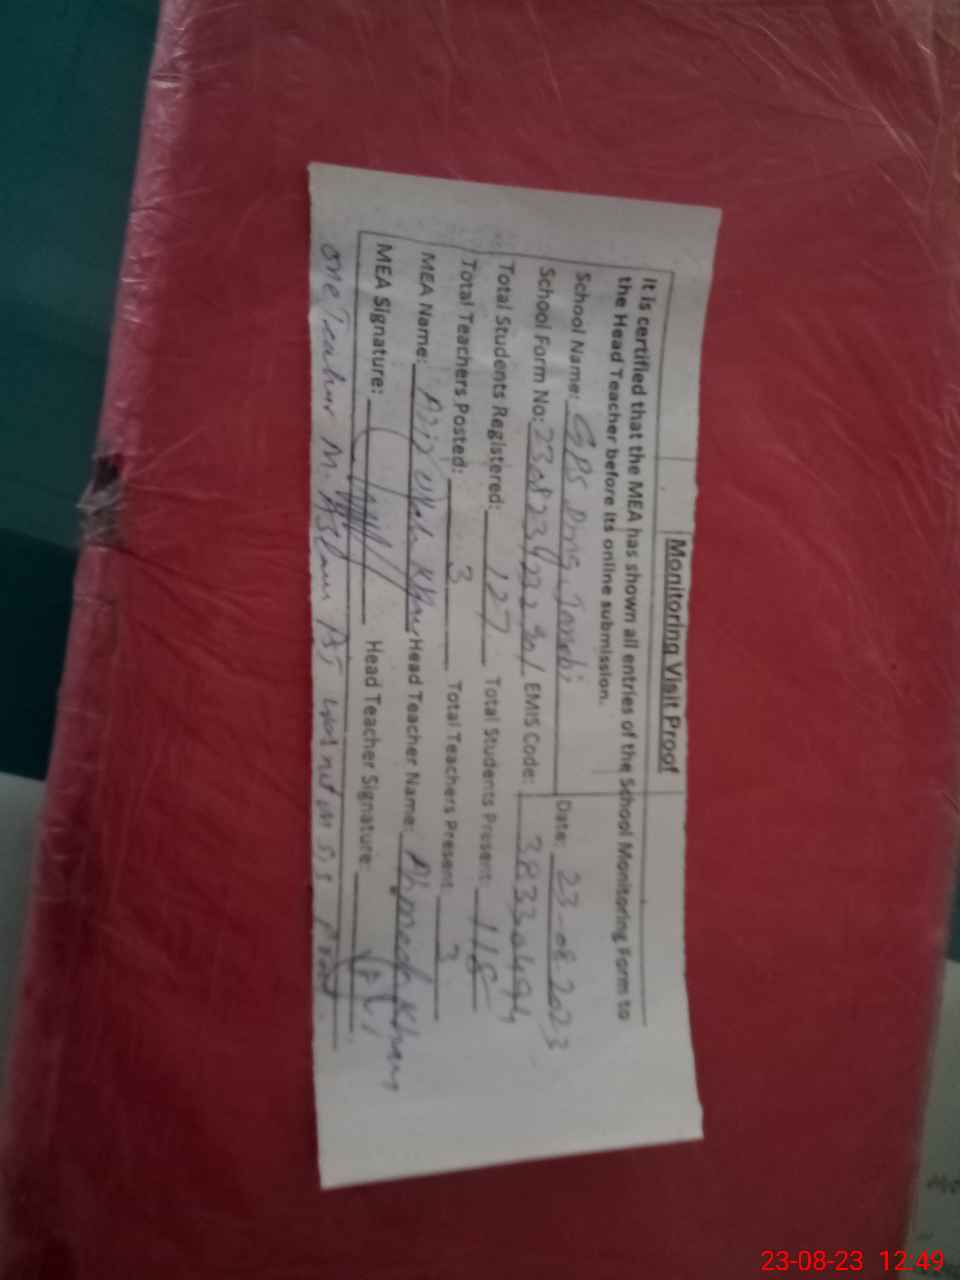 Monitoring Visit Proof
It is certified that the MEA has shown all entries of the School Monitoring Form to
the Head Teacher before its online submission.
School Name: GPS Date: 23-08-2023
School Form No: EMIS Code:
Total Students Registered: 127 Total Students Present: 118
Total Teachers Posted: 3 Total Teachers Present 3
MEA Name: Aziz Ullah Khan Head Teacher Name: Khan
MEA Signature: Head Teacher Signature:
one Teacher M. Aslam was not in
23-08-23 12:49